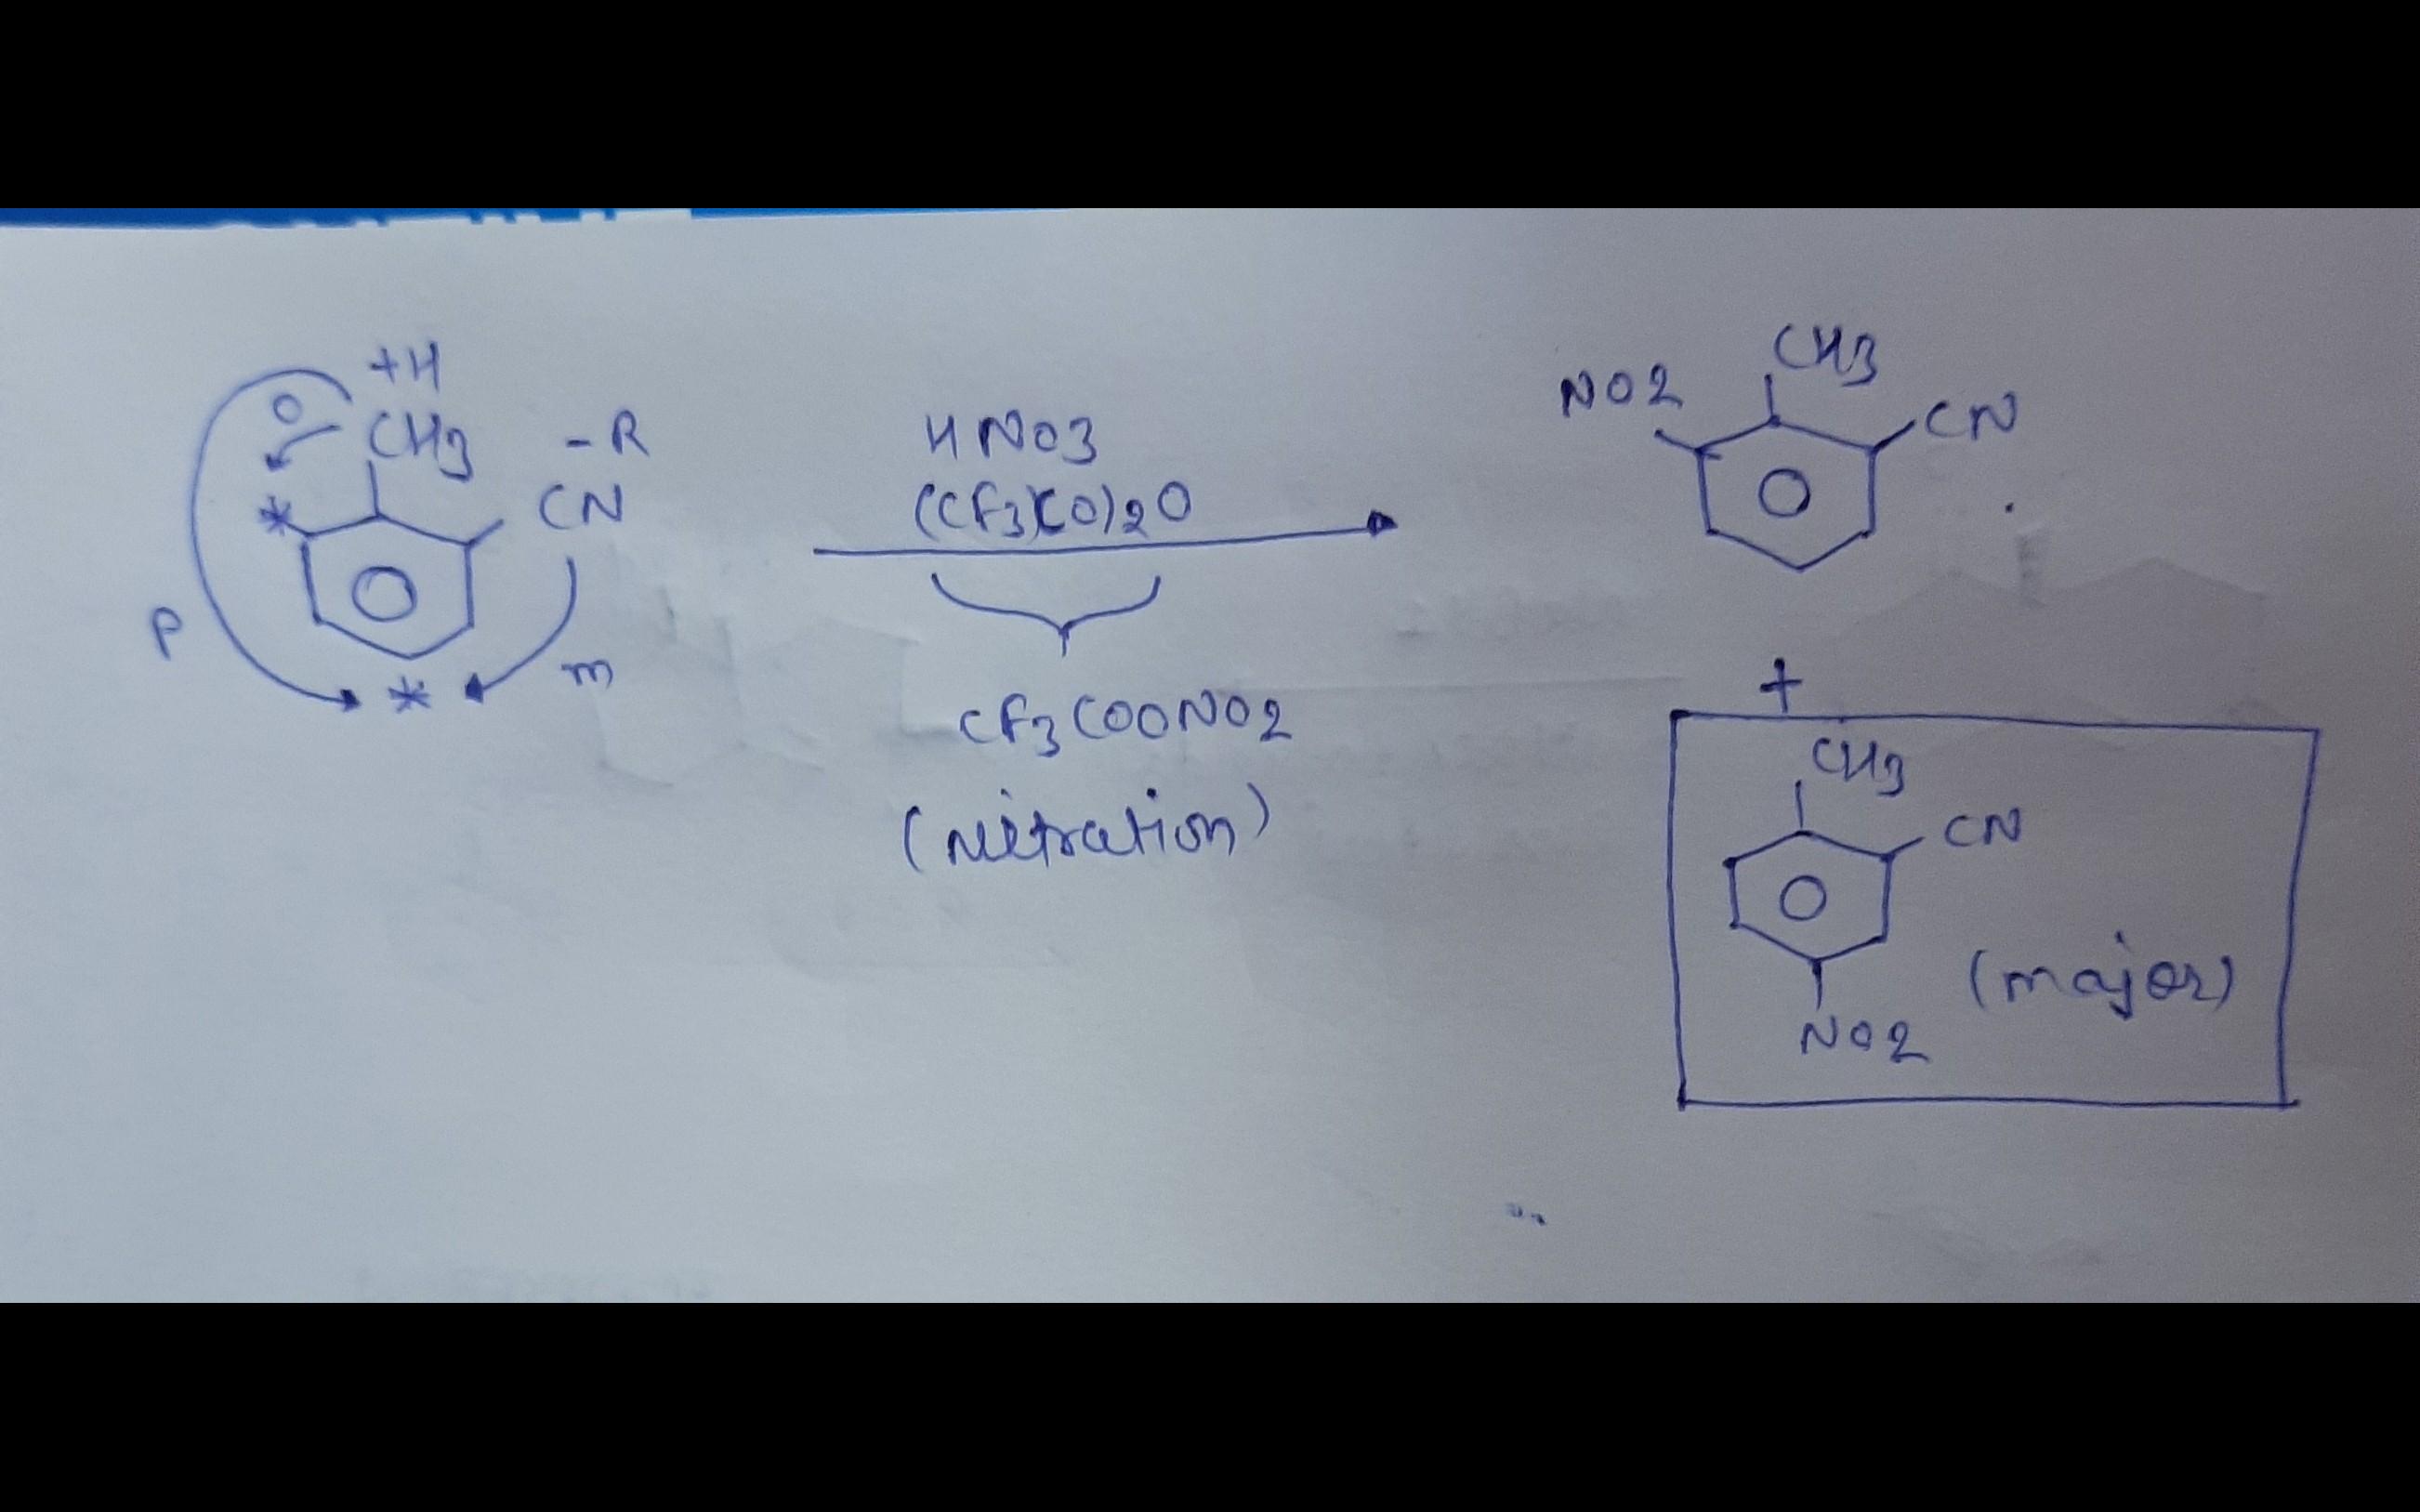 +H
O
CH3
-R
CN
*
P
*
m
HNO3
(CF3CO)2O
CF3COONO2
(Nitration)
NO2
CH3
CN
+
CH3
CN
(major)
NO2